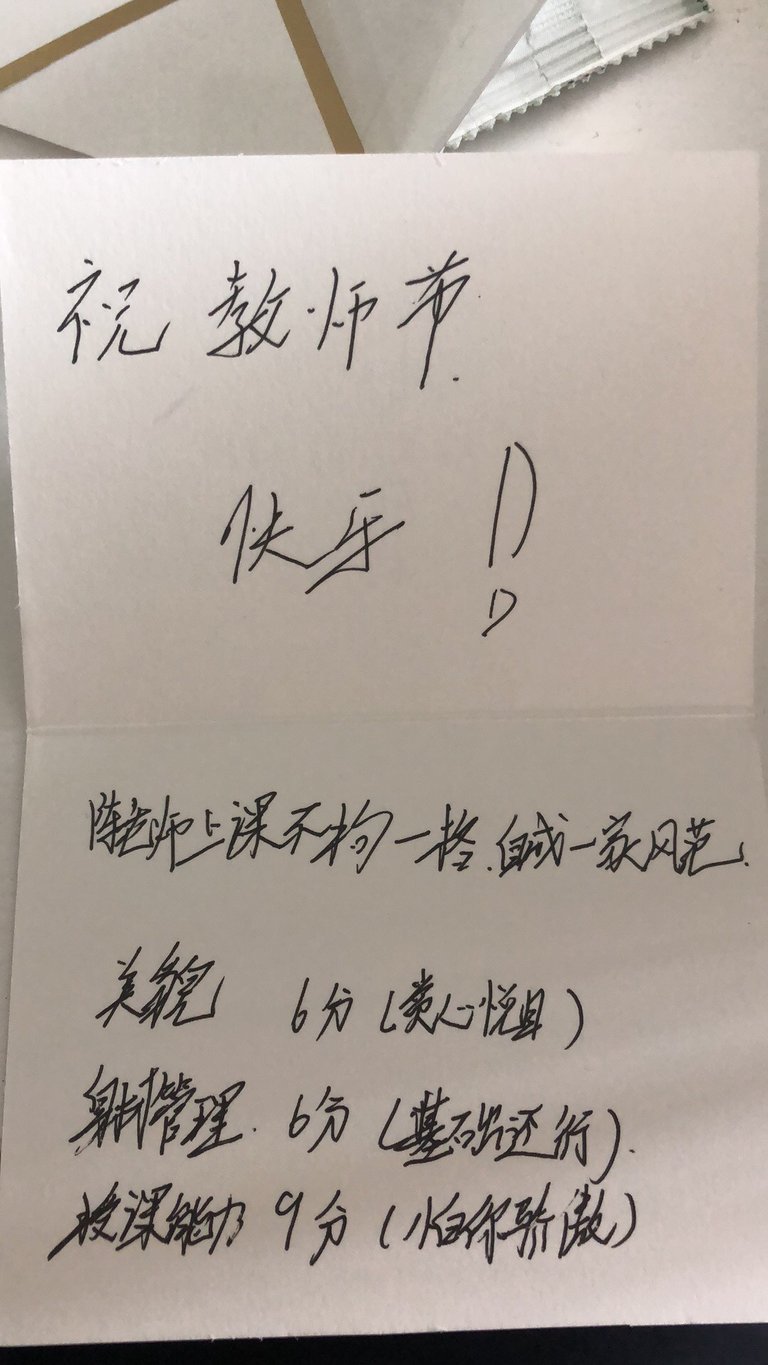 祝 教师节
快乐!
陈老师上课不拘一格.自成一家风范.
美貌 6分(赏心悦目)
身材管理. 6分(基础还行).
授课能力 9分(怕你骄傲)